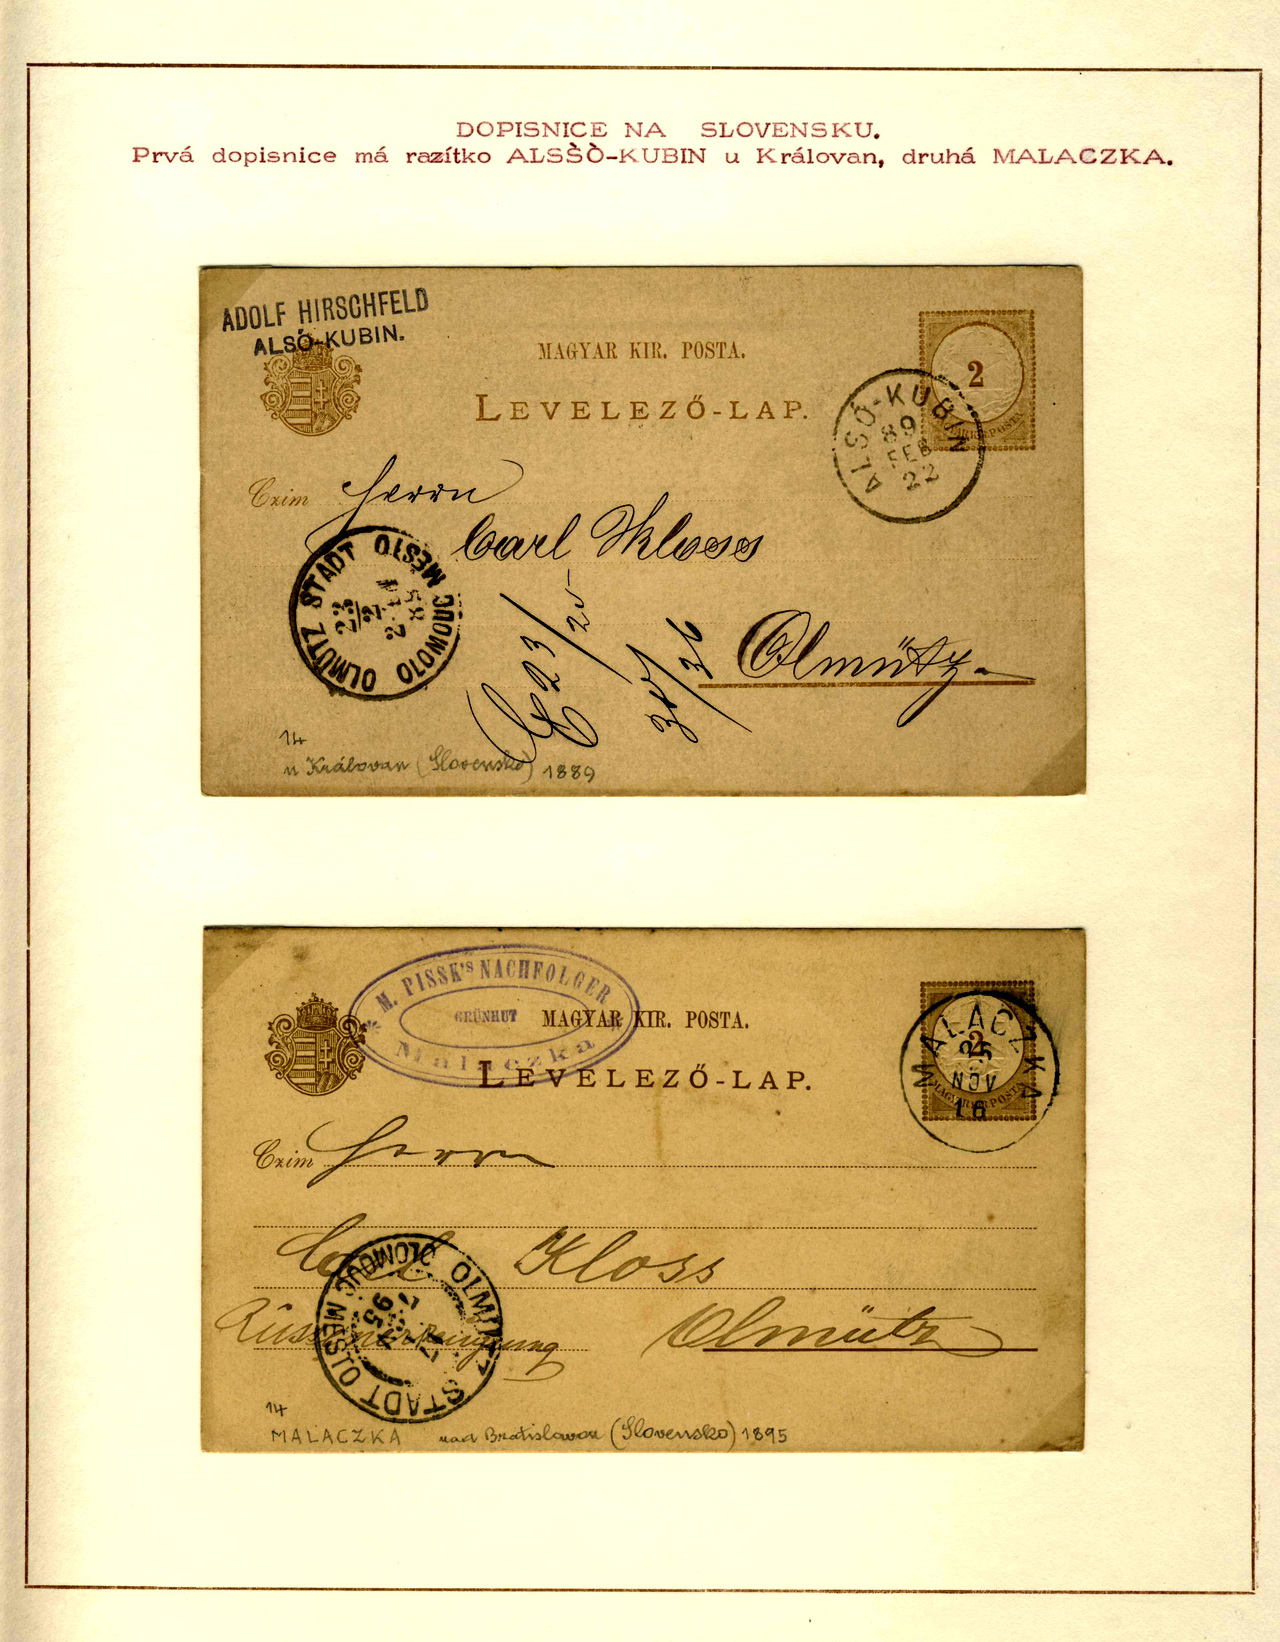 DOPISNICE NA SLOVENSKU.
Prvá dopisnice má razítko ALSŠÒ-KUBIN u Královan, druhá MALACZKA.
ADOLF HIRSCHFELD
ALSÓ-KUBIN.
MAGYAR KIR. POSTA.
LEVELEZŐ-LAP.
2
MAGYAR KIR. POSTA
ALSÓ-KUBIN
89
FEB
22
Czim Herrn
Carl Kloss
Olmütz
OLMÜTZ STADT OLOMOUC MĚSTO
23
2
89
23/25
14
u Královan (Slovensko) 1889
M. PISSK's NACHFOLGER
GRÜNHUT
Malaczka
MAGYAR KIR. POSTA.
LEVELEZŐ-LAP.
2
MAGYAR KIR. POSTA
MALACZKA
95
NOV
16
Czim Herrn
Carl Kloss
Olmütz
OLMÜTZ STADT OLOMOUC MĚSTO
17
95
14
MALACZKA nad Bratislavou (Slovensko) 1895